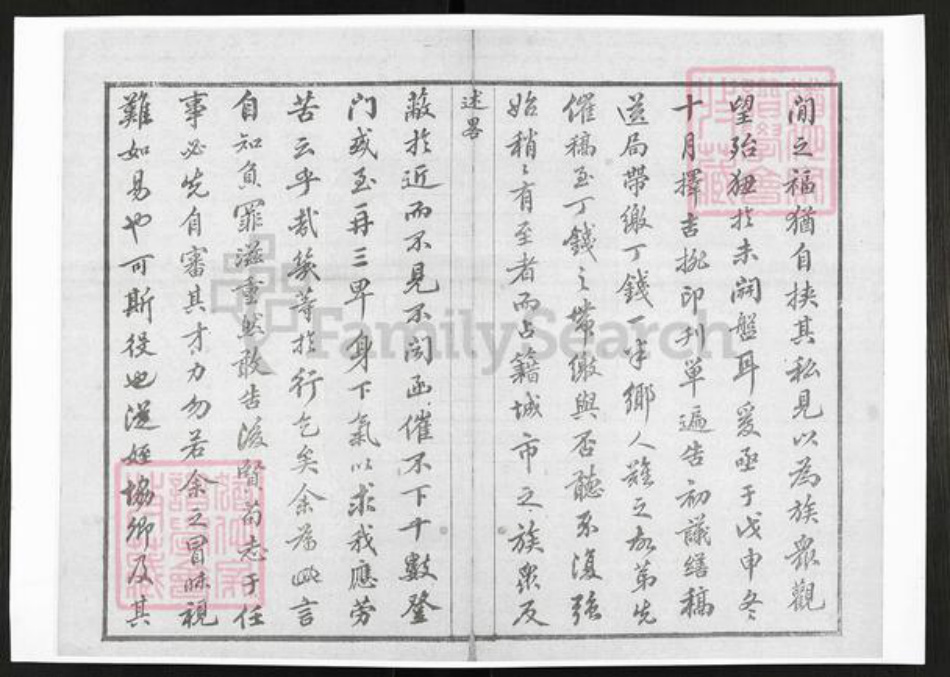 閒之福猶自挾其私見以為族衆觀
望殆狃於未開盤耳爰亟于戊申冬
十月擇吉挑印刋單遍告初議繕稿
送局帶繳丁錢一半鄉人難之故第先
催稿至丁錢之帶繳與否聽不復強
始稍〻有至者而占籍城市之族衆反
述畧
蔽於近而不見不聞函催不下十數登
门或至再三畀身下氣以求我應劳
苦云乎哉等於行乞矣余為此言
自知負罪滋重然敢告後賢苟志于任
事必先自審其才力勿若余之冒昧視
難如易也可斯役也從姪協卿及其
FamilySearch